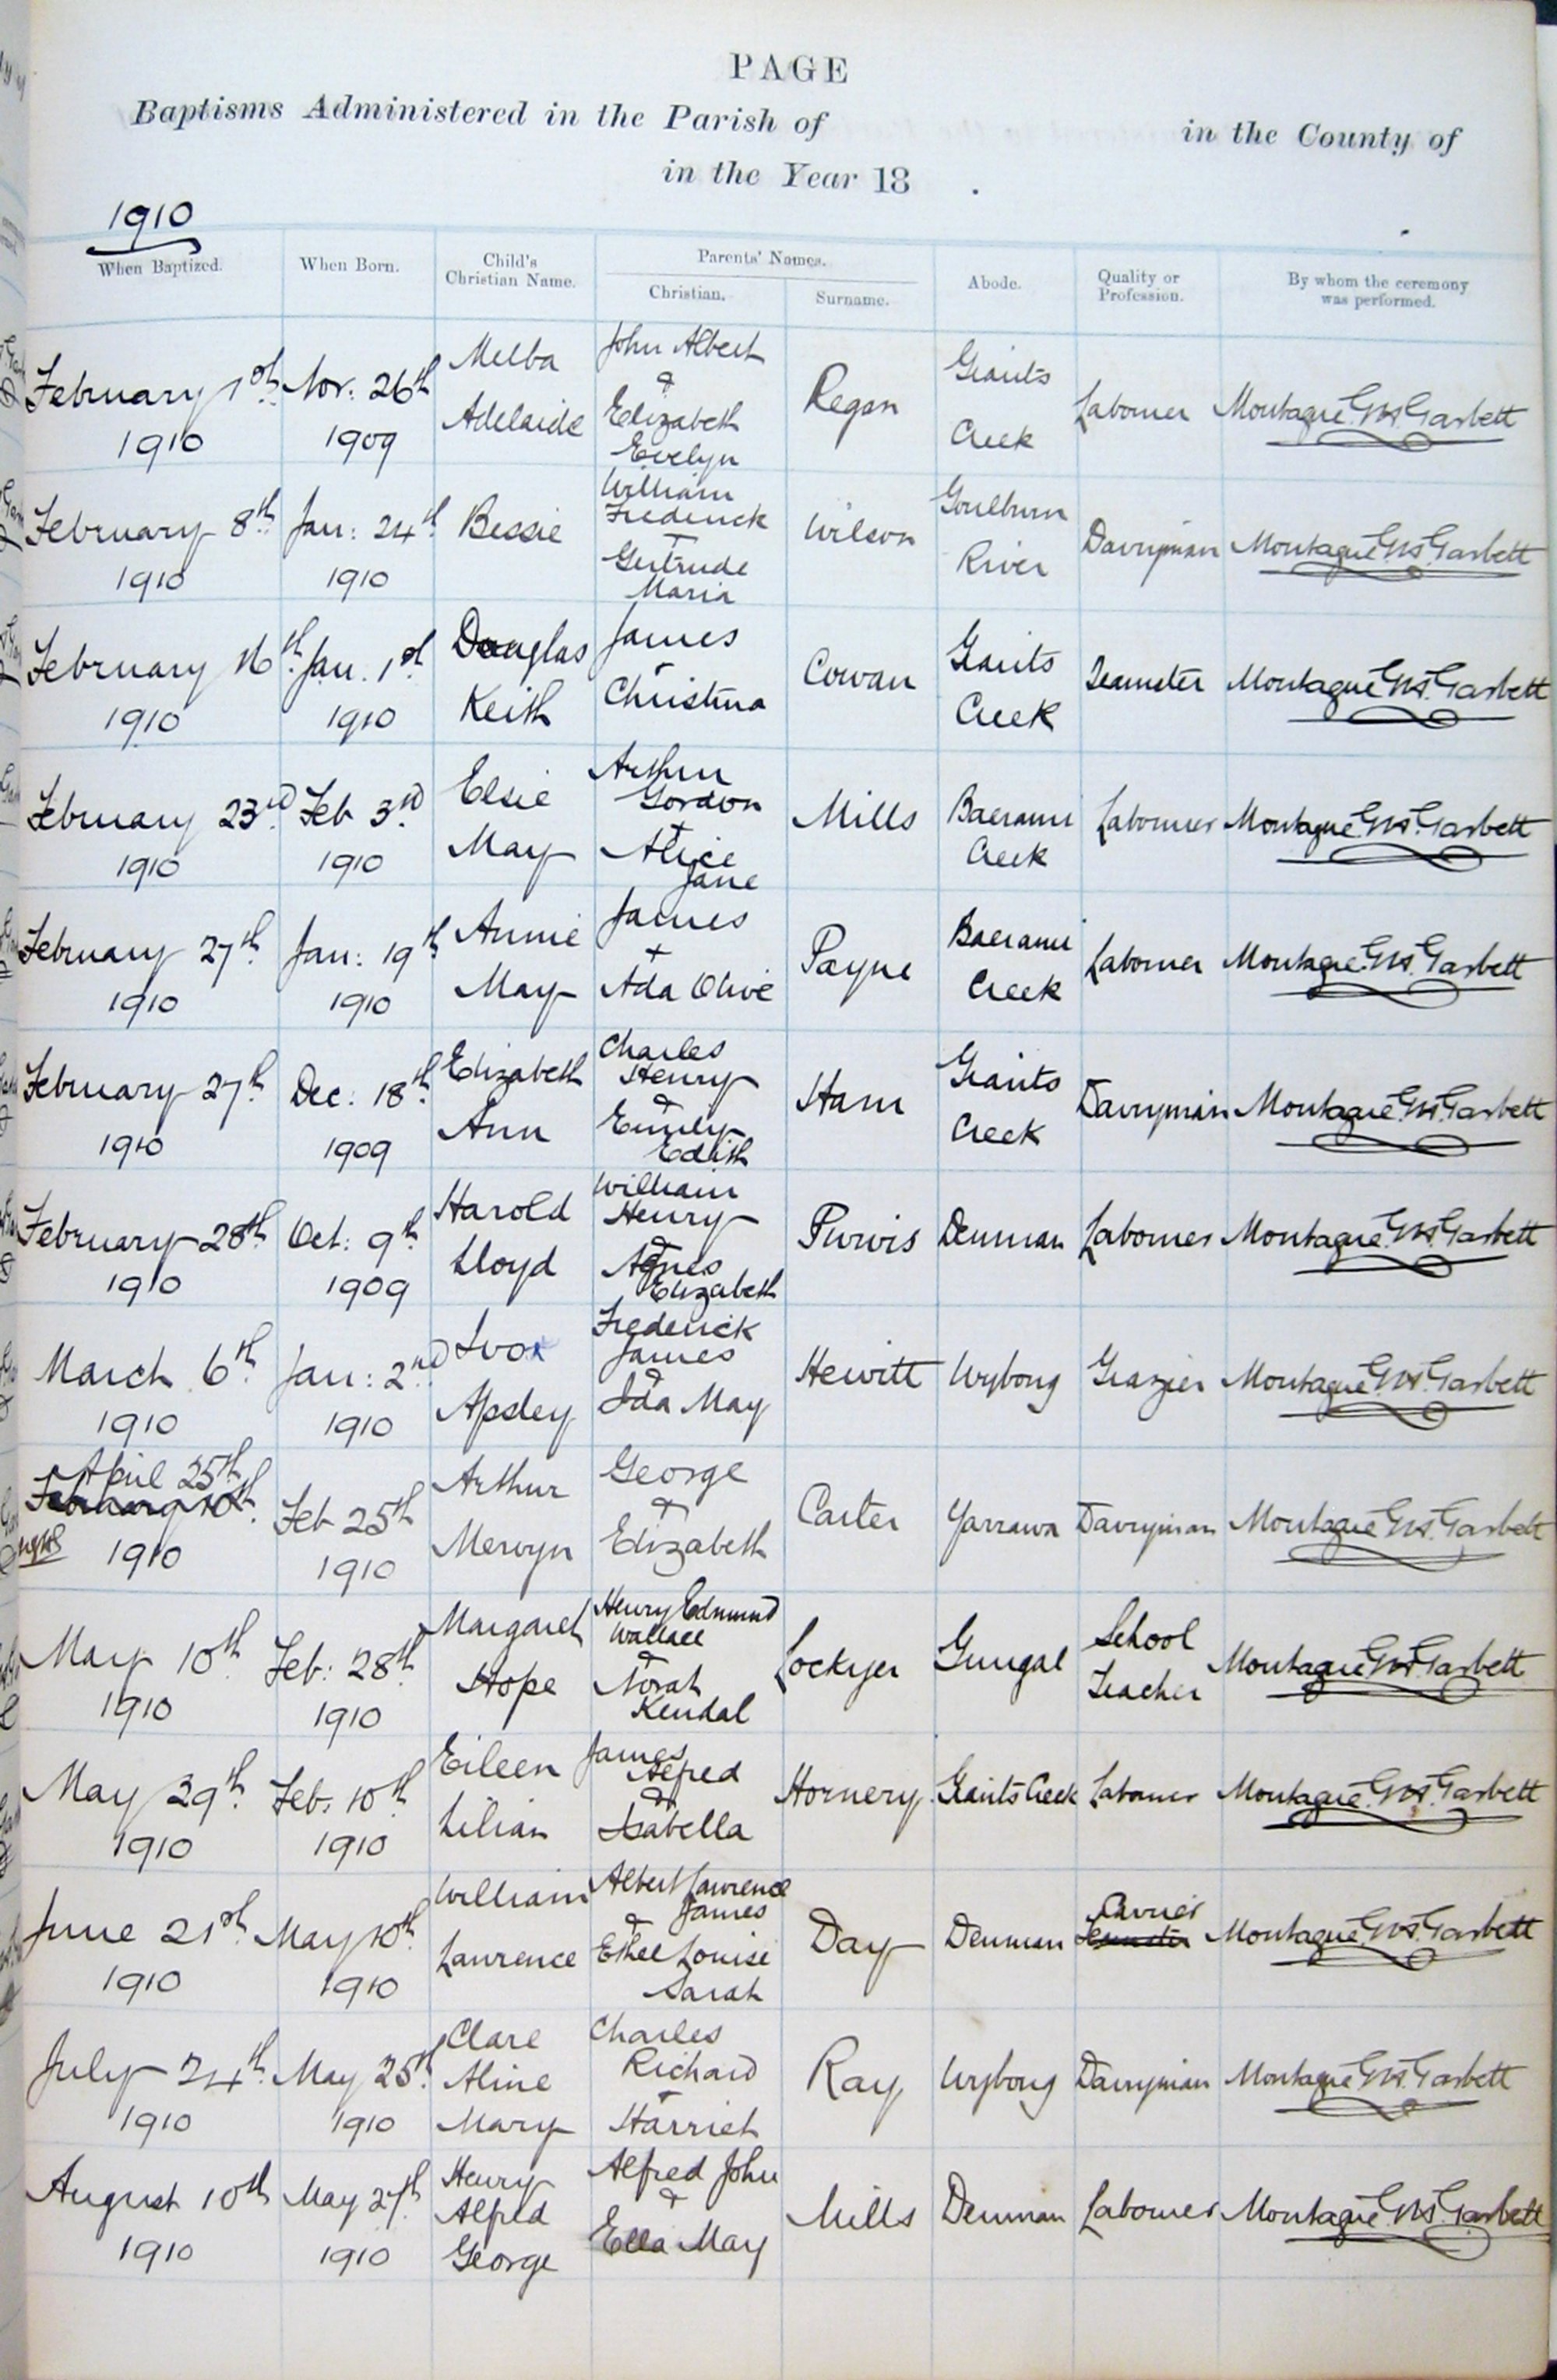 PAGE
Baptisms Administered in the Parish of in the County of
in the Year 18 .
1910
When Baptized. When Born. Child's Christian Name. Parents' Names. Christian. Surname. Abode. Quality or Profession. By whom the ceremony was performed.
February 1st 1910 Nov: 26th 1909 Melba Adelaide John Albert & Elizabeth Evelyn Regan Giants Creek Labourer Montague G.M. Garbett
February 8th 1910 Jan: 24th 1910 Bessie William Frederick + Gertrude Maria Wilson Goulburn River Dairyman Montague G.M. Garbett
February 16th 1910 Jan. 1st 1910 Douglas Keith James + Christina Cowan Giants Creek Teamster Montague G.M. Garbett
February 23rd 1910 Feb 3rd 1910 Elsie May Arthur Gordon + Alice Jane Mills Baerami Creek Labourer Montague G.M. Garbett
February 27th 1910 Jan: 19th 1910 Annie May James + Ada Olive Payne Baerami Creek Labourer Montague G.M. Garbett
February 27th 1910 Dec: 18th 1909 Elizabeth Ann Charles Henry & Emily Edith Ham Giants Creek Dairyman Montague G.M. Garbett
February 28th 1910 Oct: 9th 1909 Harold Lloyd William Henry & Agnes Elizabeth Purvis Denman Labourer Montague G.M. Garbett
March 6th 1910 Jan: 2nd 1910 Ivor Apsley Frederick James & Ida May Hewitt Wybong Grazier Montague G.M. Garbett
April 25th February 10th 1910 Feb 25th 1910 Arthur Mervyn George & Elizabeth Carter Yarrawa Dairyman Montague G.M. Garbett
May 10th 1910 Feb: 28th 1910 Margaret Hope Henry Edmund Wallace & Norah Kendal Lockyer Gungal School Teacher Montague G.M. Garbett
May 29th 1910 Feb: 10th 1910 Eileen Lilian James Alfred & Isabella Hornery Giants Creek Labourer Montague G.M. Garbett
June 21st 1910 May 10th 1910 William Lawrence Albert Lawrence James & Ethel Louise Sarah Day Denman Carrier Teamster Montague G.M. Garbett
July 24th 1910 May 25th 1910 Clare Aline Mary Charles Richard + Harriet Ray Wybong Dairyman Montague G.M. Garbett
August 10th 1910 May 27th 1910 Henry Alfred George Alfred John & Ella May Mills Denman Labourer Montague G.M. Garbett